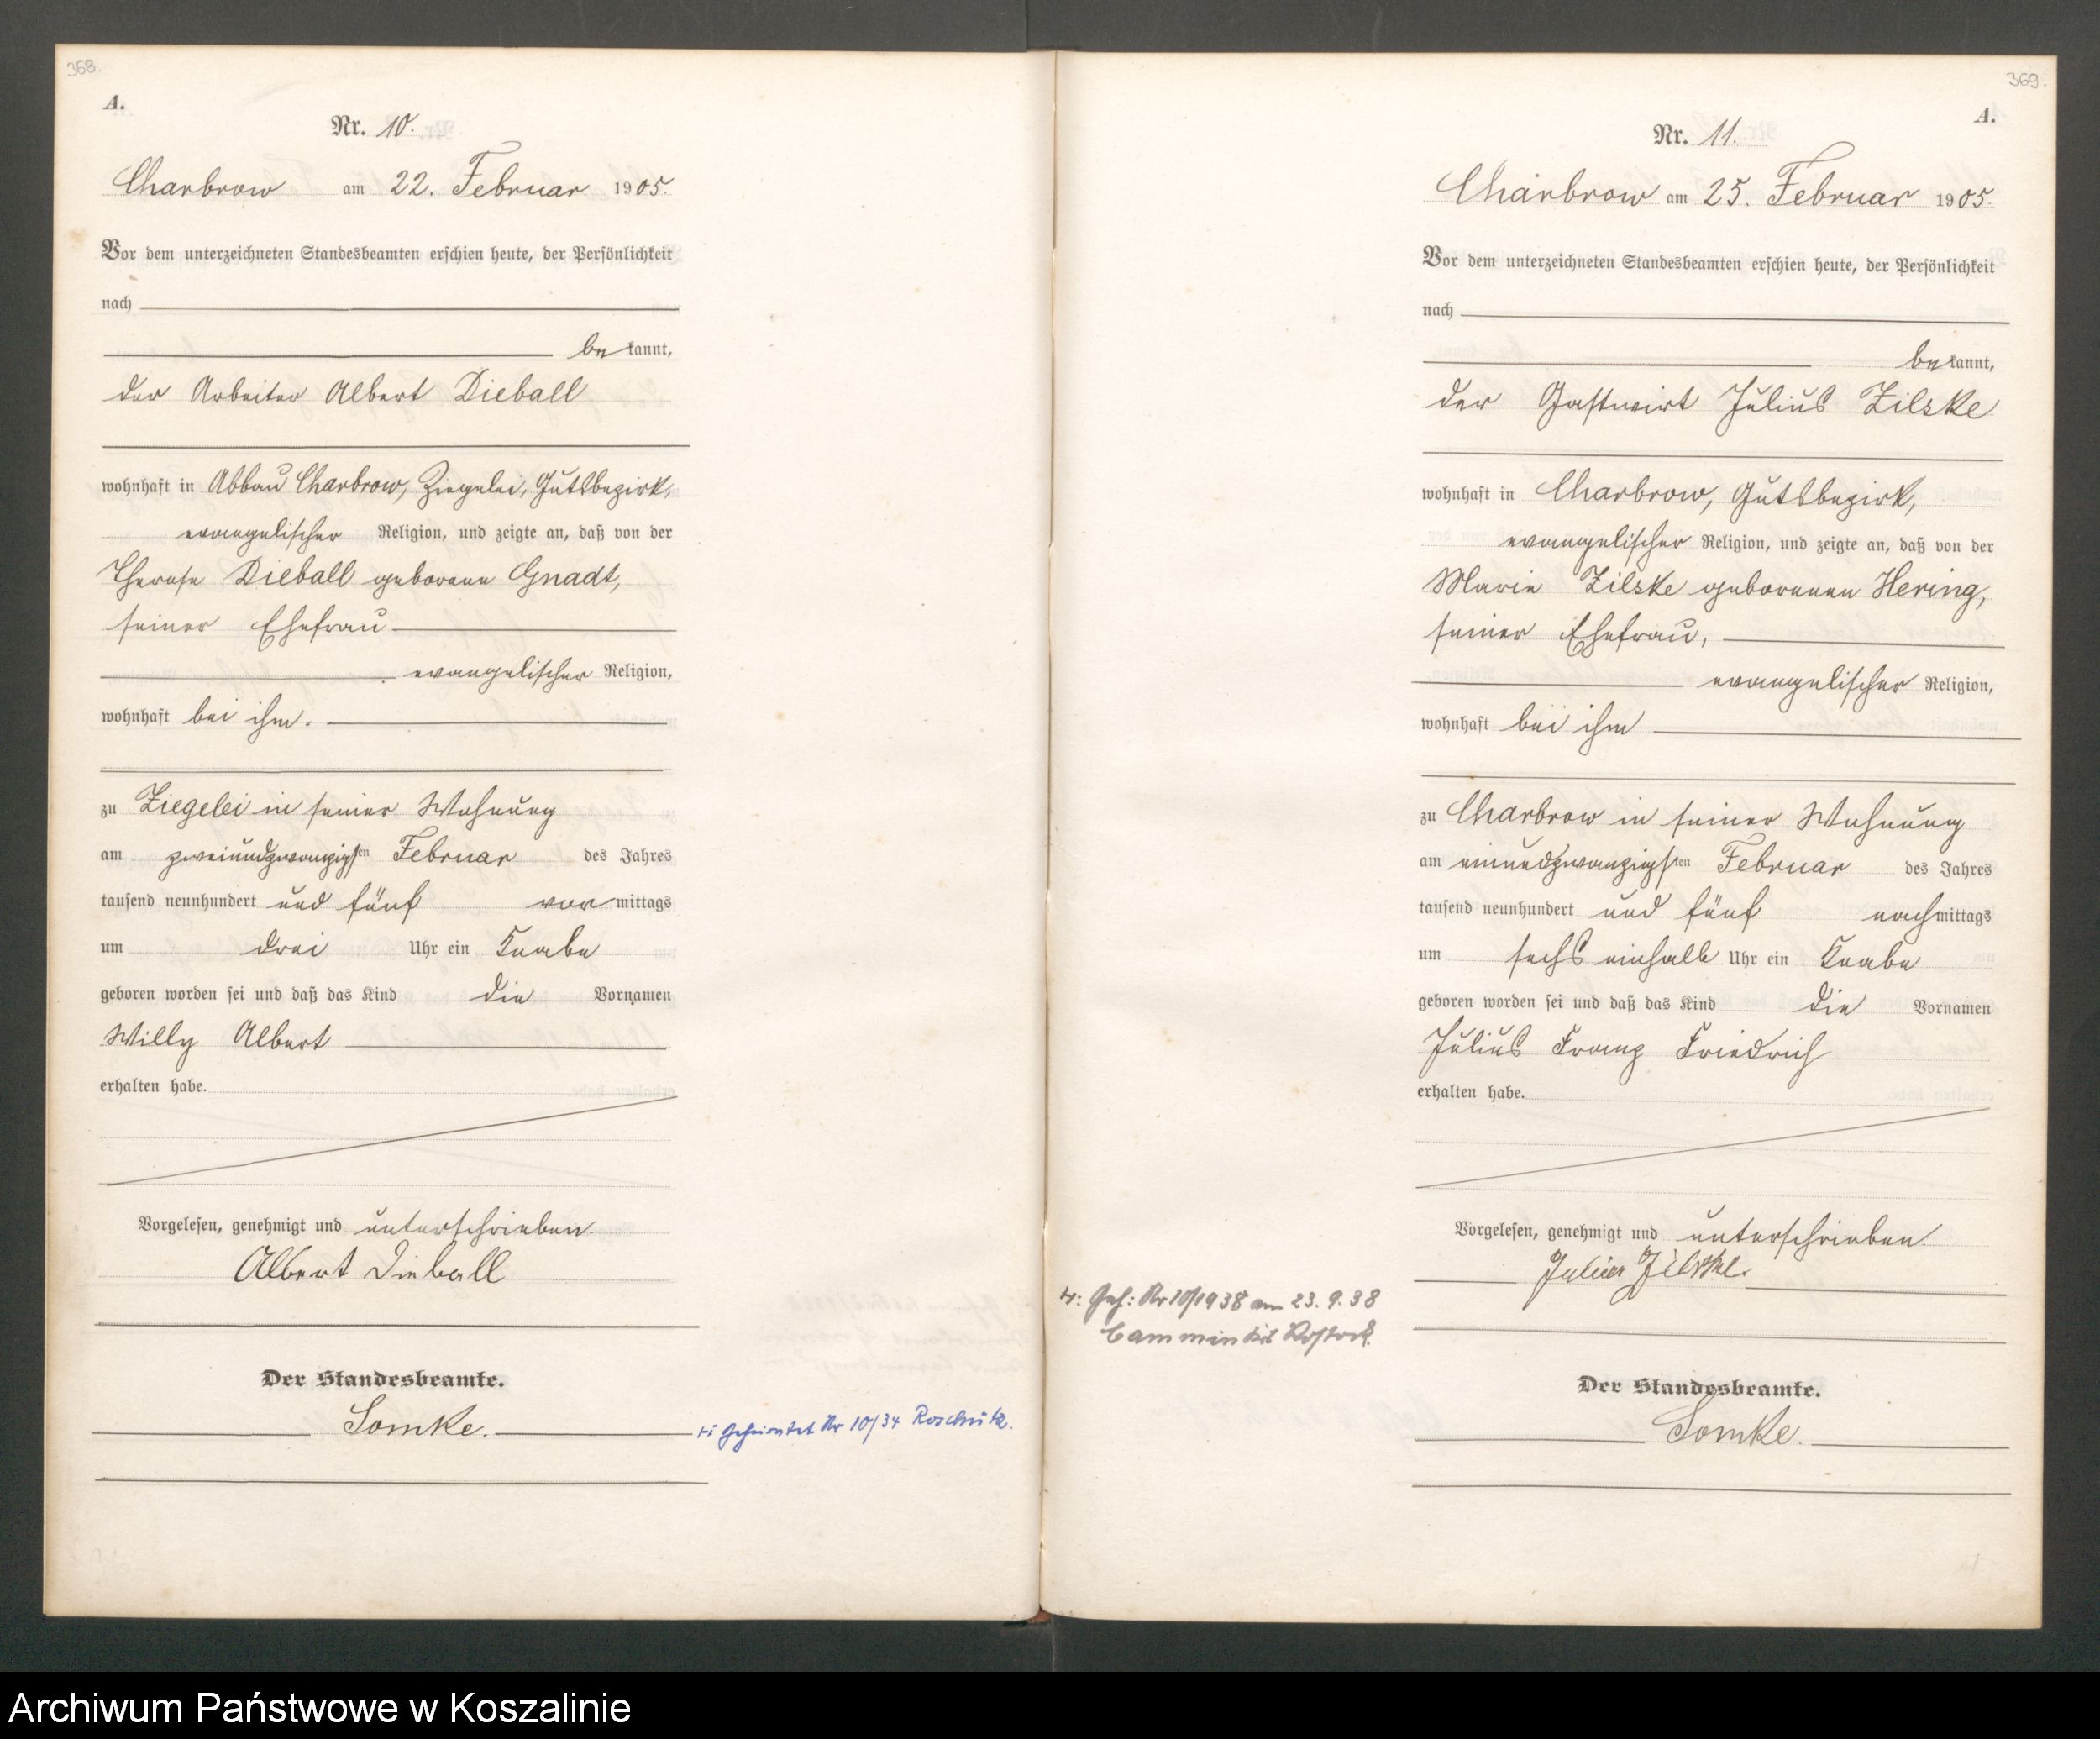 368.
A.
Nr. 10.
Charbrow am 22. Februar 1905.
Vor dem unterzeichneten Standesbeamten erschien heute, der Persönlichkeit
nach
bekannt,
der Arbeiter Albert Dieball
wohnhaft in Abbau Charbrow, Ziegelei, Gutsbezirk,
evangelischer Religion, und zeigte an, daß von der
Therese Dieball geborene Gnadt,
seiner Ehefrau
evangelischer Religion,
wohnhaft bei ihm.
zu Ziegelei in seiner Wohnung
am zweiundzwanzigsten Februar des Jahres
tausend neunhundert und fünf vormittags
um drei Uhr ein Knabe
geboren worden sei und daß das Kind die Vornamen
Willy Albert
erhalten habe.
Vorgelesen, genehmigt und unterschrieben.
Albert Dieball
Der Standesbeamte.
Lomke.
H: geheiratet Nr 10/34 Roschütz.
369.
A.
Nr. 11.
Charbrow am 25. Februar 1905.
Vor dem unterzeichneten Standesbeamten erschien heute, der Persönlichkeit
nach
bekannt,
der Gastwirt Julius Zilske
wohnhaft in Charbrow, Gutsbezirk,
evangelischer Religion, und zeigte an, daß von der
Marie Zilske geborenen Hering,
seiner Ehefrau,
evangelischer Religion,
wohnhaft bei ihm
zu Charbrow in seiner Wohnung
am einundzwanzigsten Februar des Jahres
tausend neunhundert und fünf nachmittags
um sechs einhalb Uhr ein Knabe
geboren worden sei und daß das Kind die Vornamen
Julius Franz Friedrich
erhalten habe.
Vorgelesen, genehmigt und unterschrieben.
Julius Zilske.
H: Geh: Nr 10/1938 am 23. 9. 38
Cammin Krs Rostock.
Der Standesbeamte.
Lomke.
Archiwum Państwowe w Koszalinie